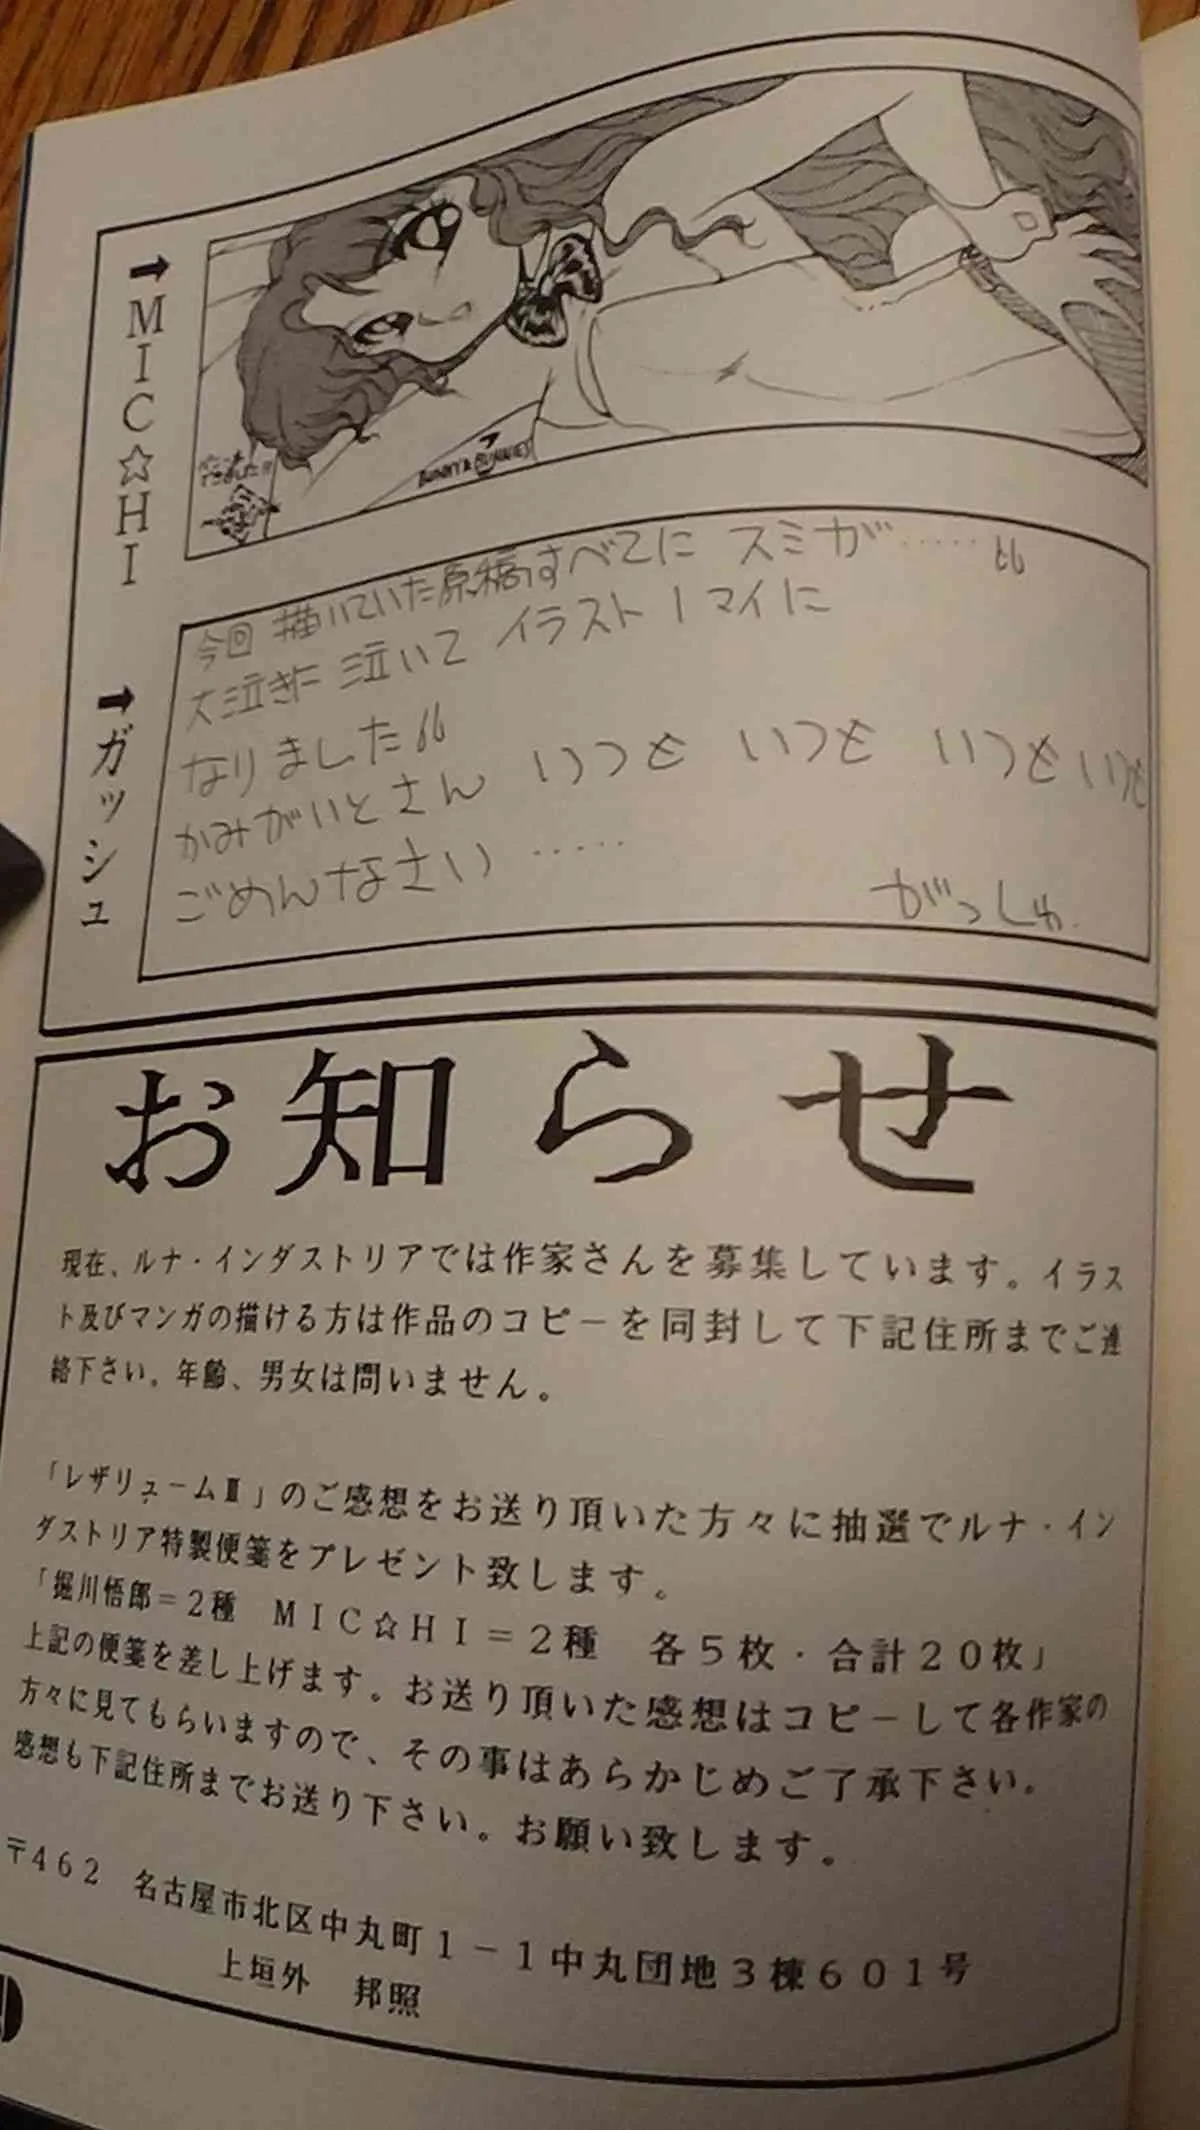 ➡MIC☆HI
BUNNY & BUNNIES
➡ガッシュ
今回 描いていた原稿すべてに スミが……
大泣きに 泣いて イラスト1マイに
なりました
かみがいとさん いつも いつも いつも いつも
ごめんなさい ……
がっしゅ
お知らせ
現在、ルナ・インダストリアでは作家さんを募集しています。イラス
ト及びマンガの描ける方は作品のコピーを同封して下記住所までご連
絡下さい。年齢、男女は問いません。
「レザリュームⅡ」のご感想をお送り頂いた方々に抽選でルナ・イン
ダストリア特製便箋をプレゼント致します。
「堀川悟郎=2種 MIC☆HI=2種 各5枚・合計20枚」
上記の便箋を差し上げます。お送り頂いた感想はコピーして各作家の
方々に見てもらいますので、その事はあらかじめご了承下さい。
感想も下記住所までお送り下さい。お願い致します。
〒462 名古屋市北区中丸町1-1中丸団地3棟601号
上垣外 邦照